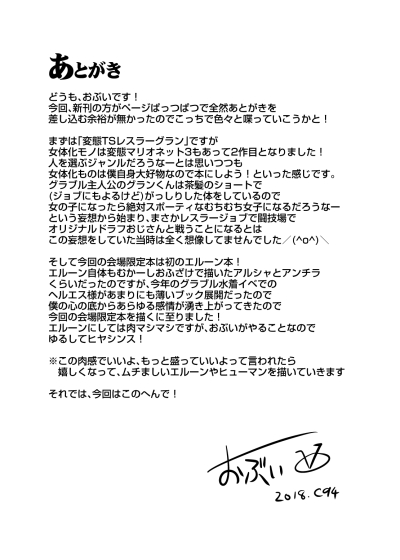 あとがき
どうも、おぶいです!
今回、新刊の方がページぱっつぱつで全然あとがきを
差し込む余裕が無かったのでこっちで色々と喋っていこうかと!
まずは「変態TSレスラーグラン」ですが
女体化モノは変態マリオネット3もあって2作目となりました!
人を選ぶジャンルだろうなーとは思いつつも
女体化ものは僕自身大好物なので本にしよう!といった感じです。
グラブル主人公のグランくんは茶髪のショートで
(ジョブにもよるけど)がっしりした体をしているので
女の子になったら絶対スポーティなむちむち女子になるだろうなー
という妄想から始まり、まさかレスラージョブで闘技場で
オリジナルドラフおじさんと戦うことになるとは
この妄想をしていた当時は全く想像してませんでした／(^o^)＼
そして今回の会場限定本は初のエルーン本!
エルーン自体もむかーしおふざけで描いたアルシャとアンチラ
くらいだったのですが、今年のグラブル水着イベでの
ヘルエス様があまりにも薄いブック展開だったので
僕の心の底からあらゆる感情が湧き上がってきたので
今回の会場限定本を描くに至りました!
エルーンにしては肉マシマシですが、おぶいがやることなので
ゆるしてヒヤシンス!
※この肉感でいいよ、もっと盛っていいよって言われたら
嬉しくなって、ムチましいエルーンやヒューマンを描いていきます
それでは、今回はこのへんで!
おぶい
2018.C94